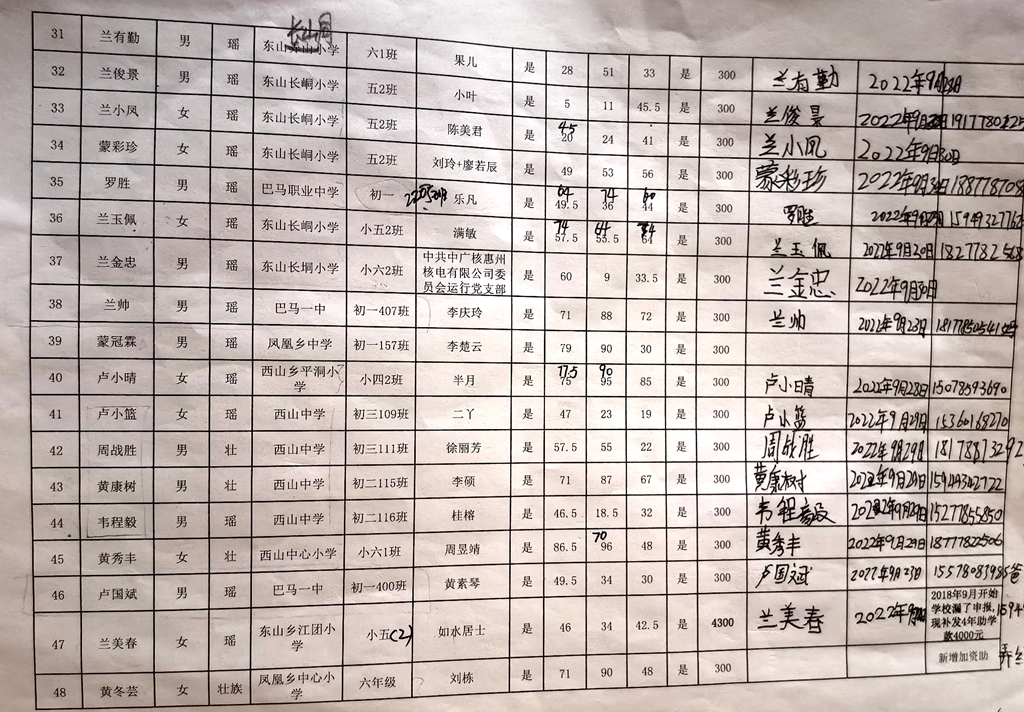 31 兰有勤 男 瑶 东山弄山小学 长山洞 六1班 果儿 是 28 51 33 是 300 兰有勤 2022年9月
32 兰俊景 男 瑶 东山长峒小学 五2班 小叶 是 5 11 45.5 是 300 兰俊景 2022年9月
33 兰小凤 女 瑶 东山长峒小学 五2班 陈美君 是 45 20 24 41 是 300 兰小凤 2022年9月30日
34 蒙彩珍 女 瑶 东山长峒小学 五2班 刘玲+廖若辰 是 49 53 56 是 300 蒙彩珍 2022年9月
35 罗胜 男 瑶 巴马职业中学 初一 乐凡 是 64 74 60 49.5 36 44 是 300 罗胜 2022年9月
36 兰玉佩 女 瑶 东山长峒小学 小五2班 满敏 是 74 64 57.5 55.5 64 是 300 兰玉佩 2022年9月20日
37 兰金忠 男 瑶 东山长垌小学 小六2班 中共中广核惠州核电有限公司委员会运行党支部 是 60 9 33.5 是 300 兰金忠 2022年9月30日
38 兰帅 男 瑶 巴马一中 初一407班 李庆玲 是 71 88 72 是 300 兰帅 2022年9月23日
39 蒙冠霖 男 瑶 凤凰乡中学 初一157班 李楚云 是 79 90 30 是 300
40 卢小晴 女 瑶 西山乡平洞小学 小四2班 半月 是 77.5 90 75 95 85 是 300 卢小晴 2022年9月28日 15078593690
41 卢小篮 女 瑶 西山中学 初三109班 二丫 是 47 23 19 是 300 卢小篮 2022年9月29日 15360169270
42 周战胜 男 壮 西山中学 初三111班 徐丽芳 是 57.5 55 22 是 300 周战胜 2022年9月29日
43 黄康树 男 壮 西山中学 初二115班 李硕 是 71 87 67 是 300 黄康树 2022年9月29日 15949342722
44 韦程毅 男 瑶 西山中学 初二116班 桂榕 是 46.5 18.5 32 是 300 韦程毅 2022年9月29日 15277855850
45 黄秀丰 女 壮 西山中心小学 小六1班 周昱靖 是 86.5 70 96 48 是 300 黄秀丰 2022年9月29日 18777822506
46 卢国斌 男 瑶 巴马一中 初一400班 黄素琴 是 49.5 34 30 是 300 卢国斌 2022年9月23日
47 兰美春 女 瑶 东山乡江团小学 小五(2) 如水居士 是 46 34 42.5 是 4300 兰美春 2022年9月 2018年9月开始学校漏了申报,现补发4年助学款4000元
48 黄冬芸 女 壮族 凤凰乡中心小学 六年级 刘栋 是 71 90 48 是 300 新增加资助